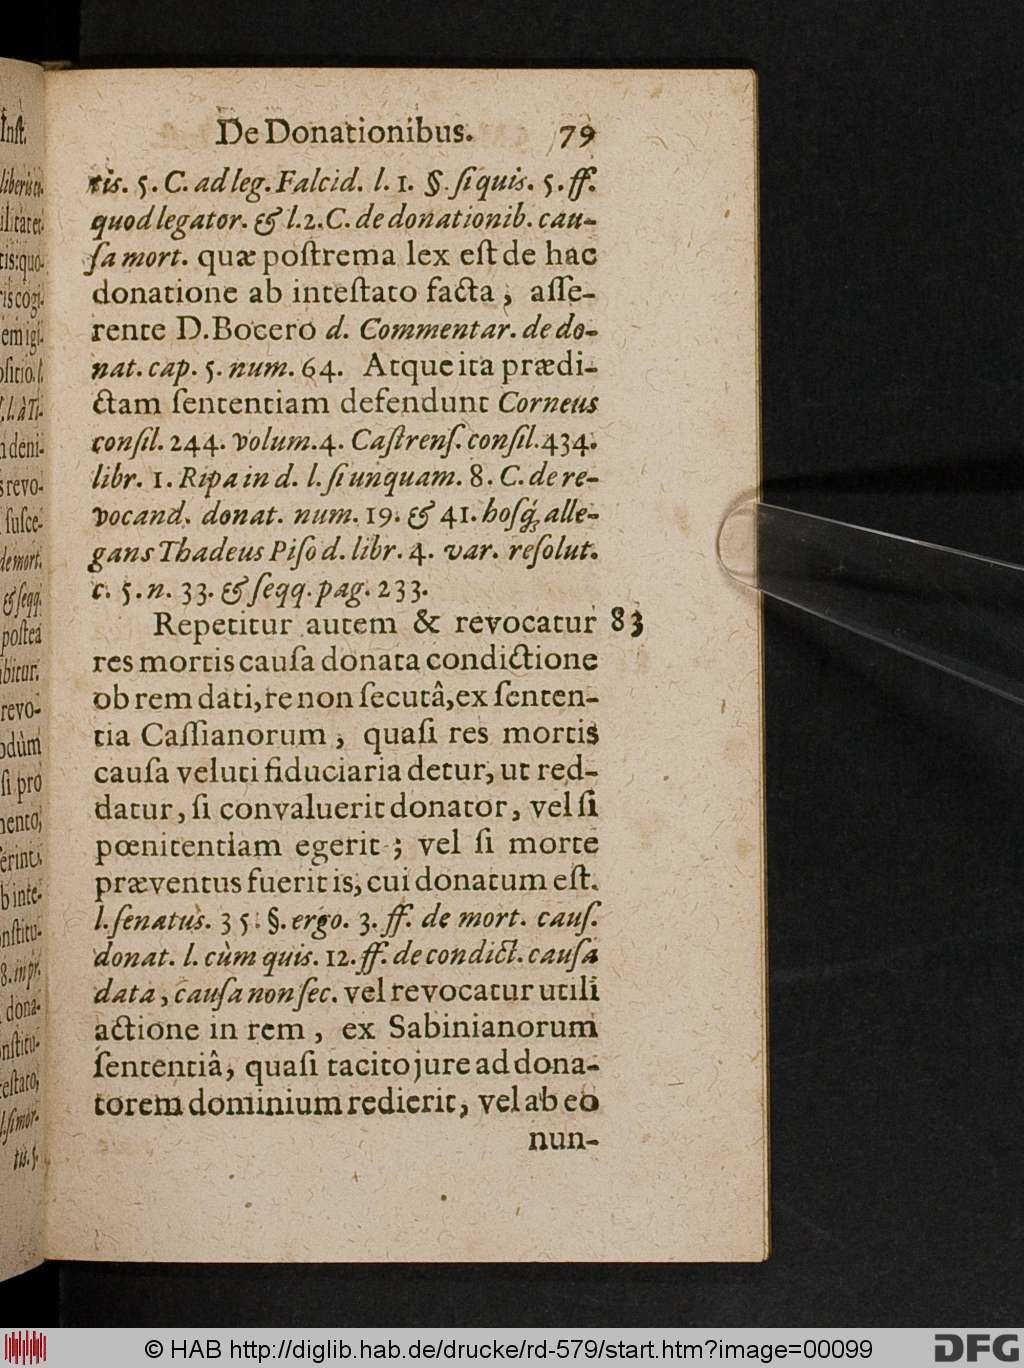 De Donationibus. 79
tis. 5. C. ad leg. Falcid. l. 1. §. si quis. 5. ff.
quod legator. & l. 2. C. de donationib. cau-
sa mort. quæ postrema lex est de hac
donatione ab intestato facta, asse-
rente D. Bocero d. Commentar. de do-
nat. cap. 5. num. 64. Atque ita prædi-
ctam sententiam defendunt Corneus
consil. 244. volum. 4. Castrens. consil. 434.
libr. 1. Ripa in d. l. si unquam. 8. C. de re-
vocand. donat. num. 19. & 41. hosq́; alle-
gans Thadeus Piso d. libr. 4. var. resolut.
c. 5. n. 33. & seqq. pag. 233.
Repetitur autem & revocatur 83
res mortis causa donata condictione
ob rem dati, re non secutâ, ex senten-
tia Cassianorum, quasi res mortis
causa veluti fiduciaria detur, ut red-
datur, si convaluerit donator, vel si
pœnitentiam egerit; vel si morte
præventus fuerit is, cui donatum est.
l. senatus. 35. §. ergo. 3. ff. de mort. caus.
donat. l. cùm quis. 12. ff. de condict. causa
data, causa non sec. vel revocatur utili
actione in rem, ex Sabinianorum
sententiâ, quasi tacito jure ad dona-
torem dominium redierit, vel ab eo
nun-
© HAB http://diglib.hab.de/drucke/rd-579/start.htm?image=00099
DFG